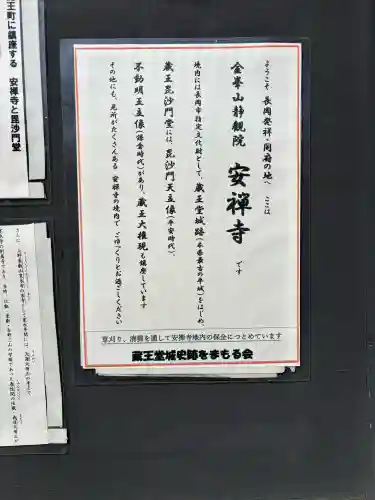 ようこそ 長岡発祥・開府の地へ ここは
金峯山静観院 安禅寺 です
境内には長岡市指定文化財として、蔵王堂城跡(本番最古の平城)をはじめ、
蔵王毘沙門堂には、毘沙門天立像(平安時代)、
不動明王立像(鎌倉時代)があり、蔵王大権現も鎮座しています
その他にも、見所がたくさんある 安禅寺の境内で ごゆっくりとお過ごしください
草刈り、清掃を通して安禅寺境内の保全につとめています
蔵王堂城史跡をまもる会
王町に鎮座する 安禅寺と毘沙門堂